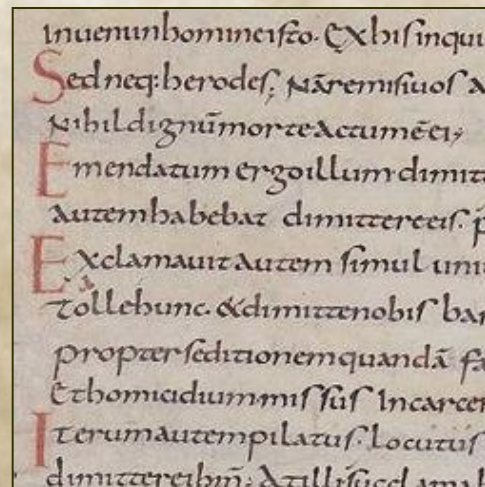 Inuenin homine isto. Ex his in qui
Sed neq: herodes; Nā remisi uos a
Nihil dignū morte actum ē ei;
Emendatum ergo illum dimitt
autem habebat dimittere eis. p
Exclamauit autem simul uni
Tolle hunc. & dimitte nobis bar
propter seditionem quandā fa
Et homicidium missus In carcer
Iterum autem pilatus. locutus
dimittere ihm̄; At illi succlamab